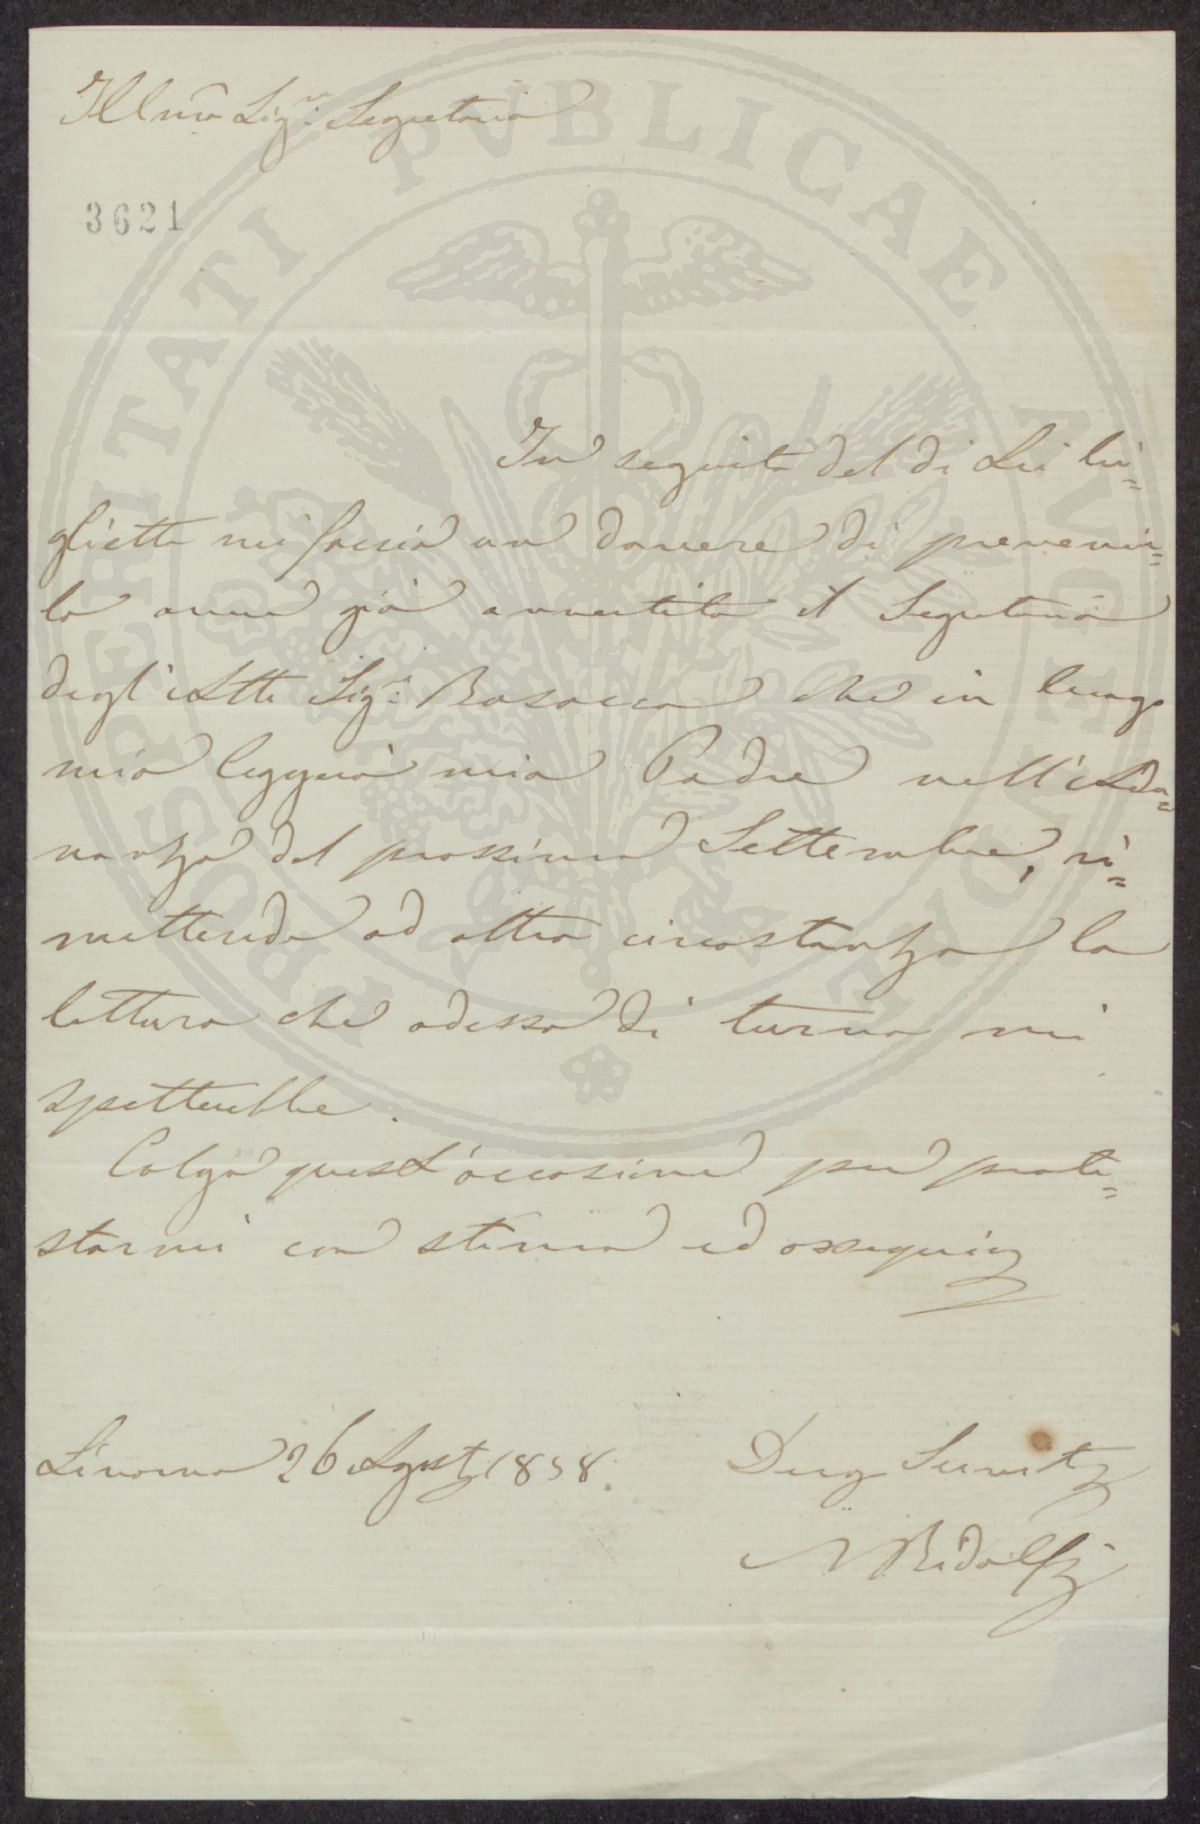 Illmo Sigre Segretario
3621
In seguito del di Lei bi=
glietto mi faccio un dovere di prevenir=
lo aver già avvertito il Segretario
degl'Atti Sigre che in luogo
mio leggerà mio Padre nell'Adu=
nanza del prossimo Settembre, ri=
mettendo ad altra circostanza la
lettura che adesso di turno mi
spetterebbe.
Colgo quest'occasione per prote=
starmi con stima ed ossequio
Livorno 26 Agosto 1858.
Devo Servitore
Ridolfi
PROSPERITATI PVBLICAE AVGENDAE